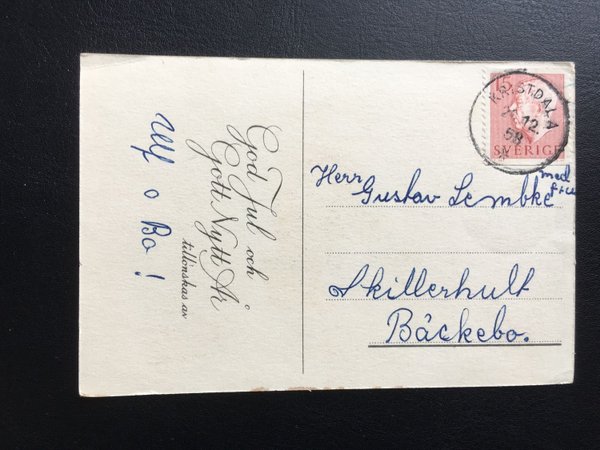 God Jul och
Gott Nytt År
tillönskas av
Ulf o Bo!
KRISTDALA
12.
58
SVERIGE
Herr Gustav Lembke
med fru
Skillerhult
Bäckebo.